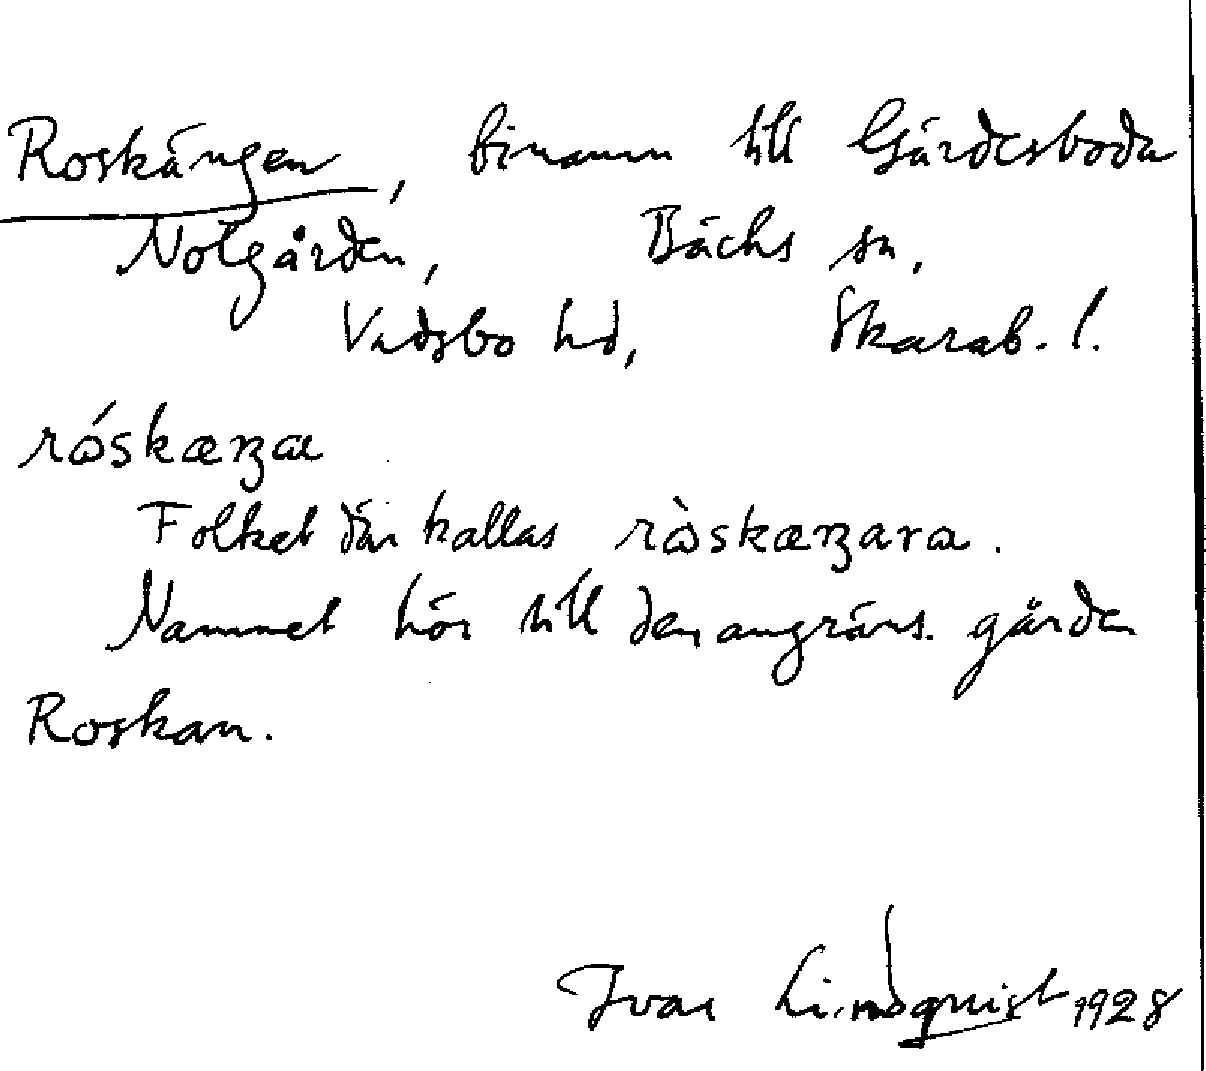 Roskängen, binamn till Gärdesboda
Nolgården, Bäcks sn,
Vadsbo hd, Skarab. l.
Folket där kallas
Namnet hör till den angräns. gården
Roskan.
Ivar Lindquist 1928